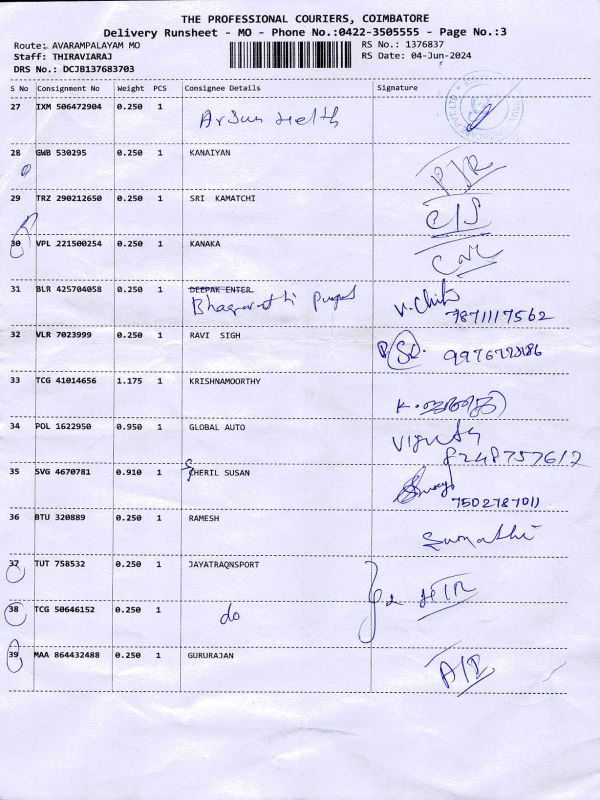 THE PROFESSIONAL COURIERS, COIMBATORE
Delivery Runsheet - MO - Phone No.:0422-3505555 - Page No.:3
Route: AVARAMPALAYAM MO RS No.: 1376837
Staff: THIRAVIARAJ RS Date: 04-Jun-2024
DRS No.: DCJB137683703
S No Consignment No Weight PCS Consignee Details Signature
27 IXM 506472904 0.250 1
28 GWB 530295 0.250 1 KANAIYAN
29 TRZ 290212650 0.250 1 SRI KAMATCHI C/S
30 VPL 221500254 0.250 1 KANAKA
31 BLR 425704058 0.250 1 DEEPAK ENTER
7871117562
32 VLR 7023999 0.250 1 RAVI SIGH
33 TCG 41014656 1.175 1 KRISHNAMOORTHY
34 POL 1622950 0.950 1 GLOBAL AUTO
8248757612
35 SVG 4670781 0.910 1 CHERIL SUSAN
7502787011
36 BTU 320889 0.250 1 RAMESH Sumathi
37 TUT 758532 0.250 1 JAYATRAQNSPORT
38 TCG 50646152 0.250 1 do
39 MAA 864432488 0.250 1 GURURAJAN